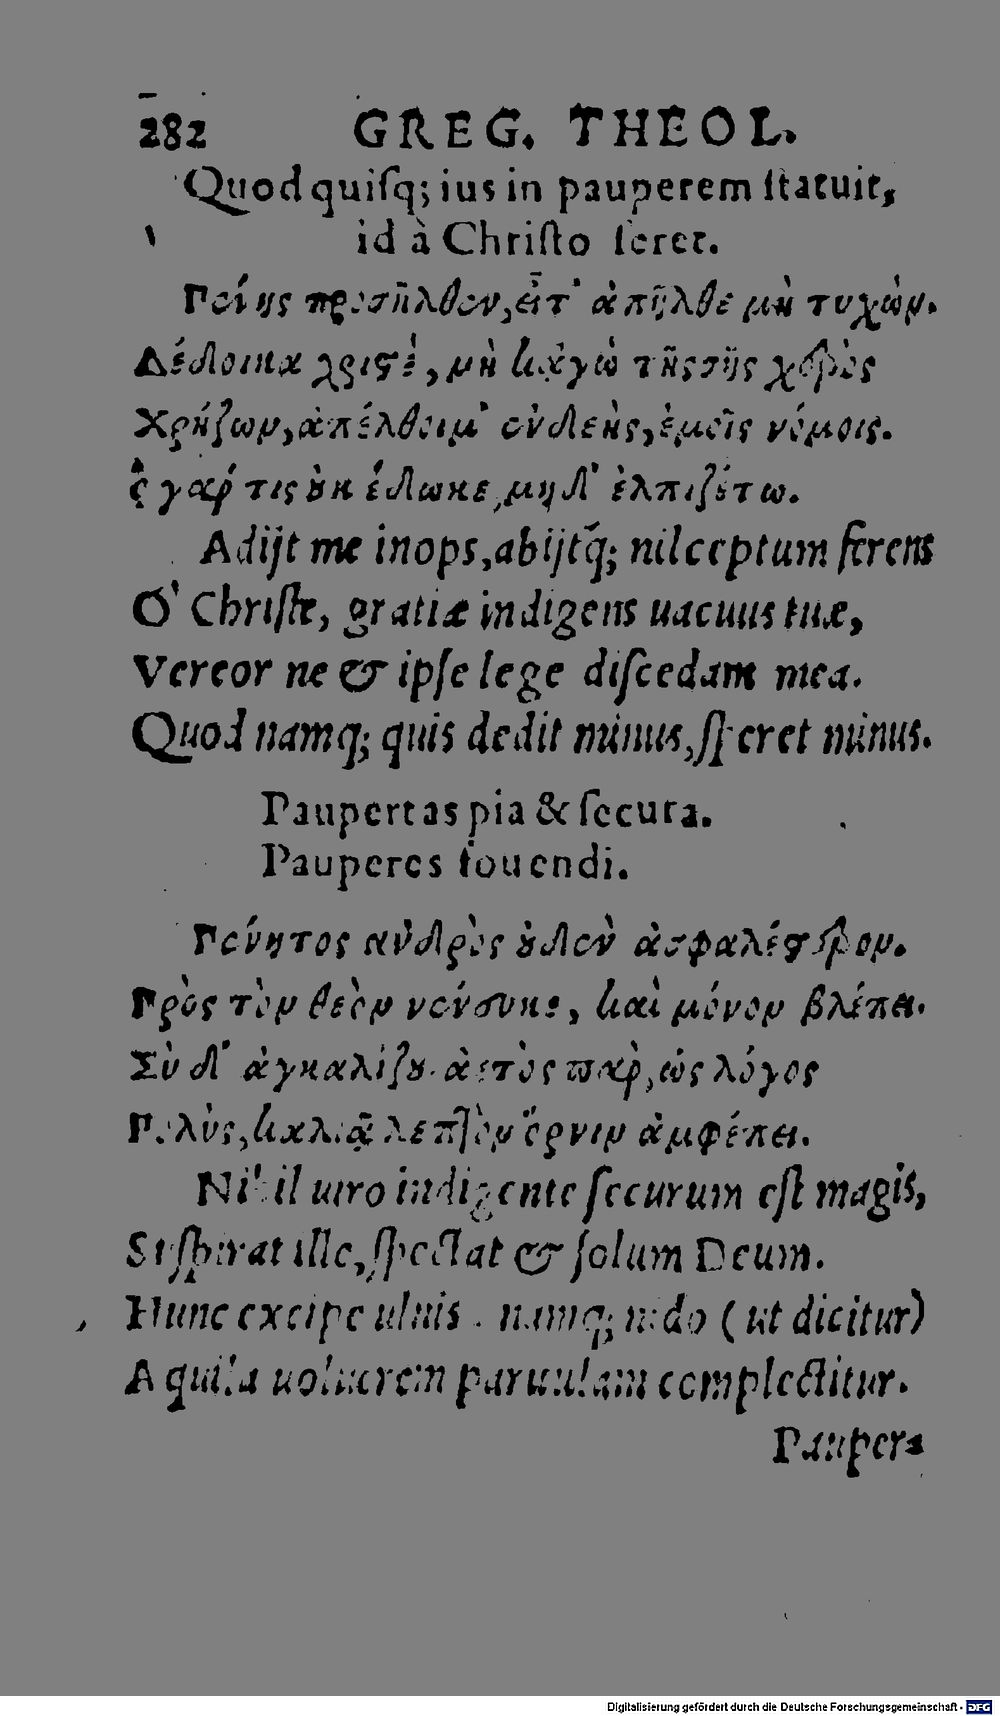 282 GREG. THEOL.
Quod quiſq; ius in pauperem ſtatuit,
id à Chriſto feret.
Πένης προσῆλθεν, εἶτ' ἀπῆλθε μὴ τυχών.
Δέδοικα χριϛέ, μὴ κἀγὼ τῆς σῆς χερὸς
Χρῄζων, ἀπέλθοιμ' ἐνδεὴς, ἐμοῖς νόμοις.
ὃ γάρ τις ȣκ ἔδωκε, μηδ' ἐλπιζέτω.
Adijt me inops, abijtq́; nil ceptum ferens
O' Chriſte, gratiæ indigens uacuus tuæ,
Vereor ne & ipſe lege diſcedam mea.
Quod namq; quis dedit minus, ſperet minus.
Paupertas pia & ſecura.
Pauperes fouendi.
Πένητος ἀνδρὸς ȣδὲν ἀσφαλέϛερον.
Πρὸς τὸν θεὸν νένευκε, καὶ μόνον βλέπει.
Σὺ δ' ἀγκαλίζȣ. ἀετὸς γὰρ, ὡς λόγος
Πολὺς, καλιᾷ λεπτὸν ὄρνιν ἀμφέπει.
Nihil uiro indigente ſecurum eſt magis,
Suſpirat ille, ſpectat & ſolum Deum.
Hunc excipe ulnis. namq; nido (ut dicitur)
Aquila uolucrem paruulam complectitur.
Paupera
Digitalisierung gefördert durch die Deutsche Forschungsgemeinschaft - DFG